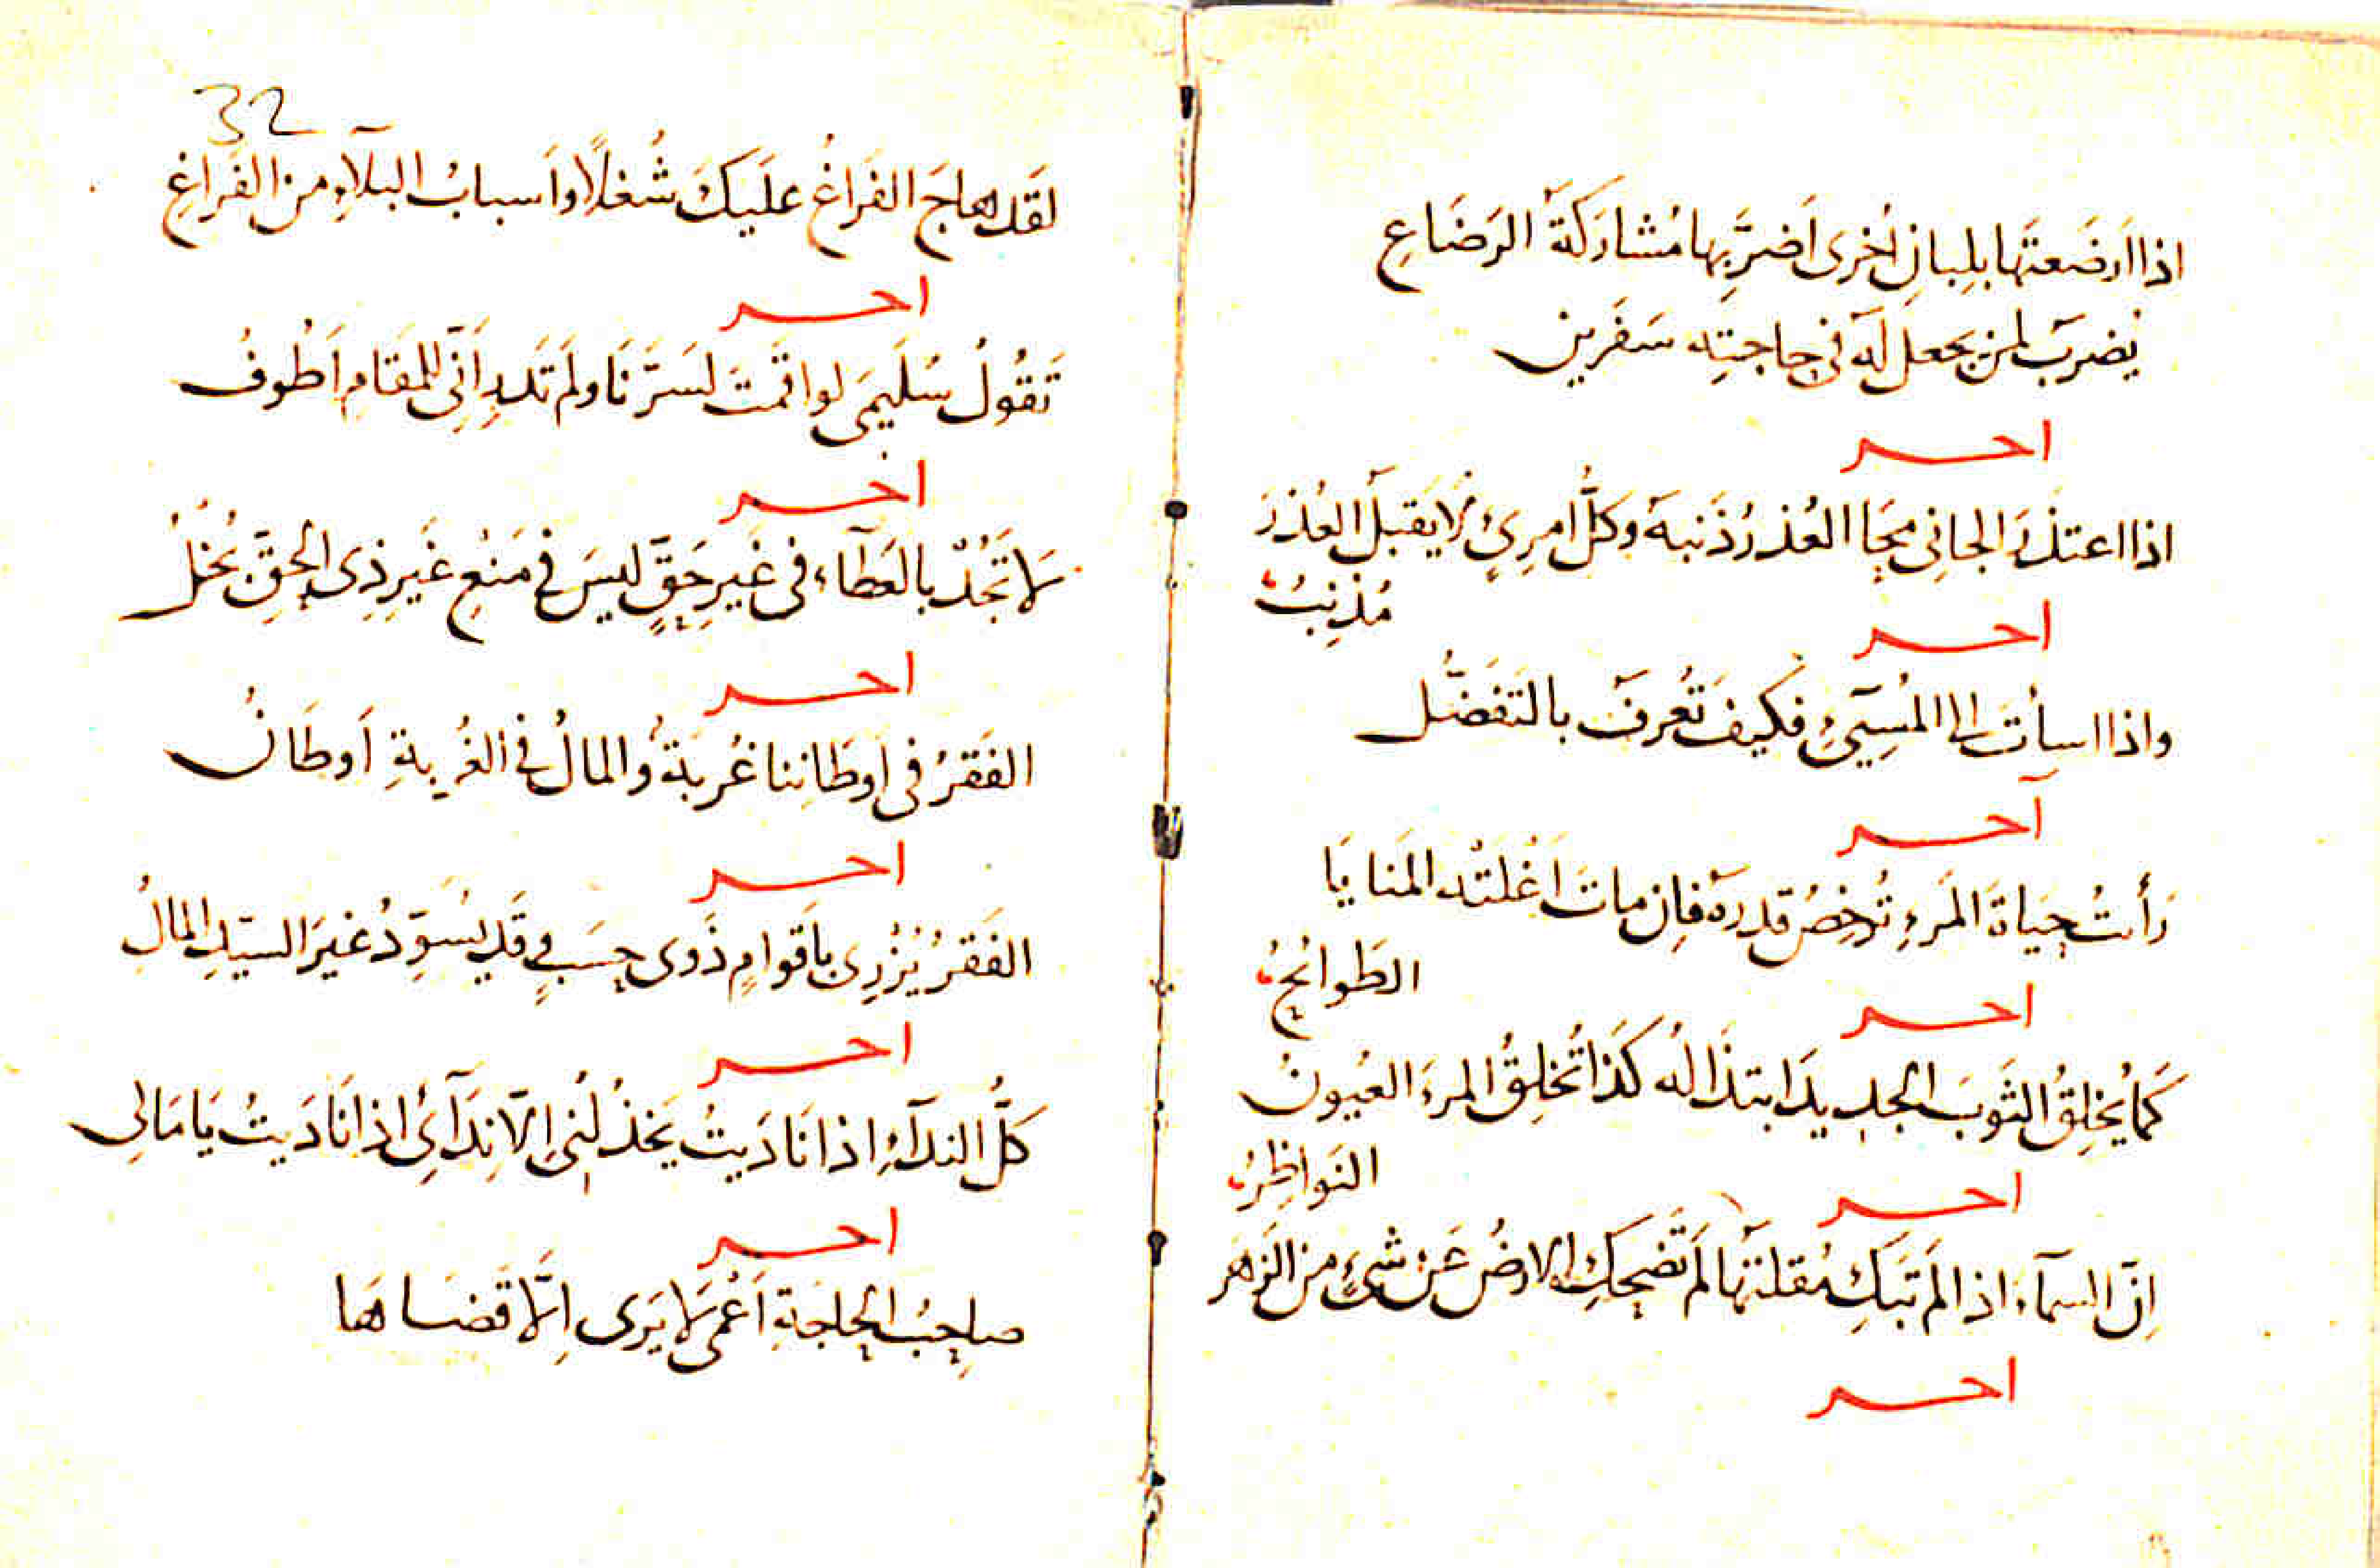 اذا ارضَعتَها بلِبانِ اُخرى اَضرَّ بِها مُشارَكَةُ الرَضَاعِ
يُضرَبُ لمن يجعل لَه في حاجتِه سَفَرين
احر
اذا اعتذَرَ الجانِى مَحَا العُذرُ ذَنبهَ وكلُّ امرِئٍ لَا يَقبَلُ العُذرَ
مُذنِبُ
احر
واذا اسأتَ الى المُسِيءِ فكيفَ تُعرفُ بالتَفضُّل
احر
رَأيتُ حيَاةَ المَرءِ تُرخِصُ قدرَهُ فاِن ماتَ اَغْلَتْه المَنايَا
الطَوائحُ
احر
كَما يُخلِقُ الثَوبَ الجديدَ ابتذَالُه كَذَا تُخلِقُ المرءَ العُيونُ
النَواظِرُ
احر
اِنّ السمآء اذا لَم تَبكِ مُقلتُها لَم تَضحَكِ الارضُ عَن شئٍ من الزَهَر
احر
32
لقَد هاجَ الفَراغُ علَيكَ شُغلًا واَسبابُ البلآءِ من الفَراغِ
احر
تَقُولُ سُلَيمَى لو اقَمتَ لسَرَّنَا ولَم تَدرِ اَنِّى للمَقَامِ اَطُوفُ
اخر
لَا تَجُدْ بالعَطآءِ فى غَيرِ حَقٍّ ليسَ فى مَنعِ غَيرِ ذِى الحقِّ بُخلُ
احر
الفَقرُ فى اَوطَانِنا غُربَةُ والمالُ فى الغُربةِ اَوطَانُ
احر
الفَقرُ يُزْرِى باَقوامٍ ذَوى حسَبٍ وقَد يُسَوِّدُ غيرَ السيّدِ المالُ
احر
كلُّ الندآءِ اذا نَادَيتُ يَخذُلُنى اِلّا نِدَآئِى اذا نَادَيتُ يَا مَالِى
احر
صاحِبُ الحاجَةِ اَعْمى لَا يَرَى اِلَّا قَضاهَا